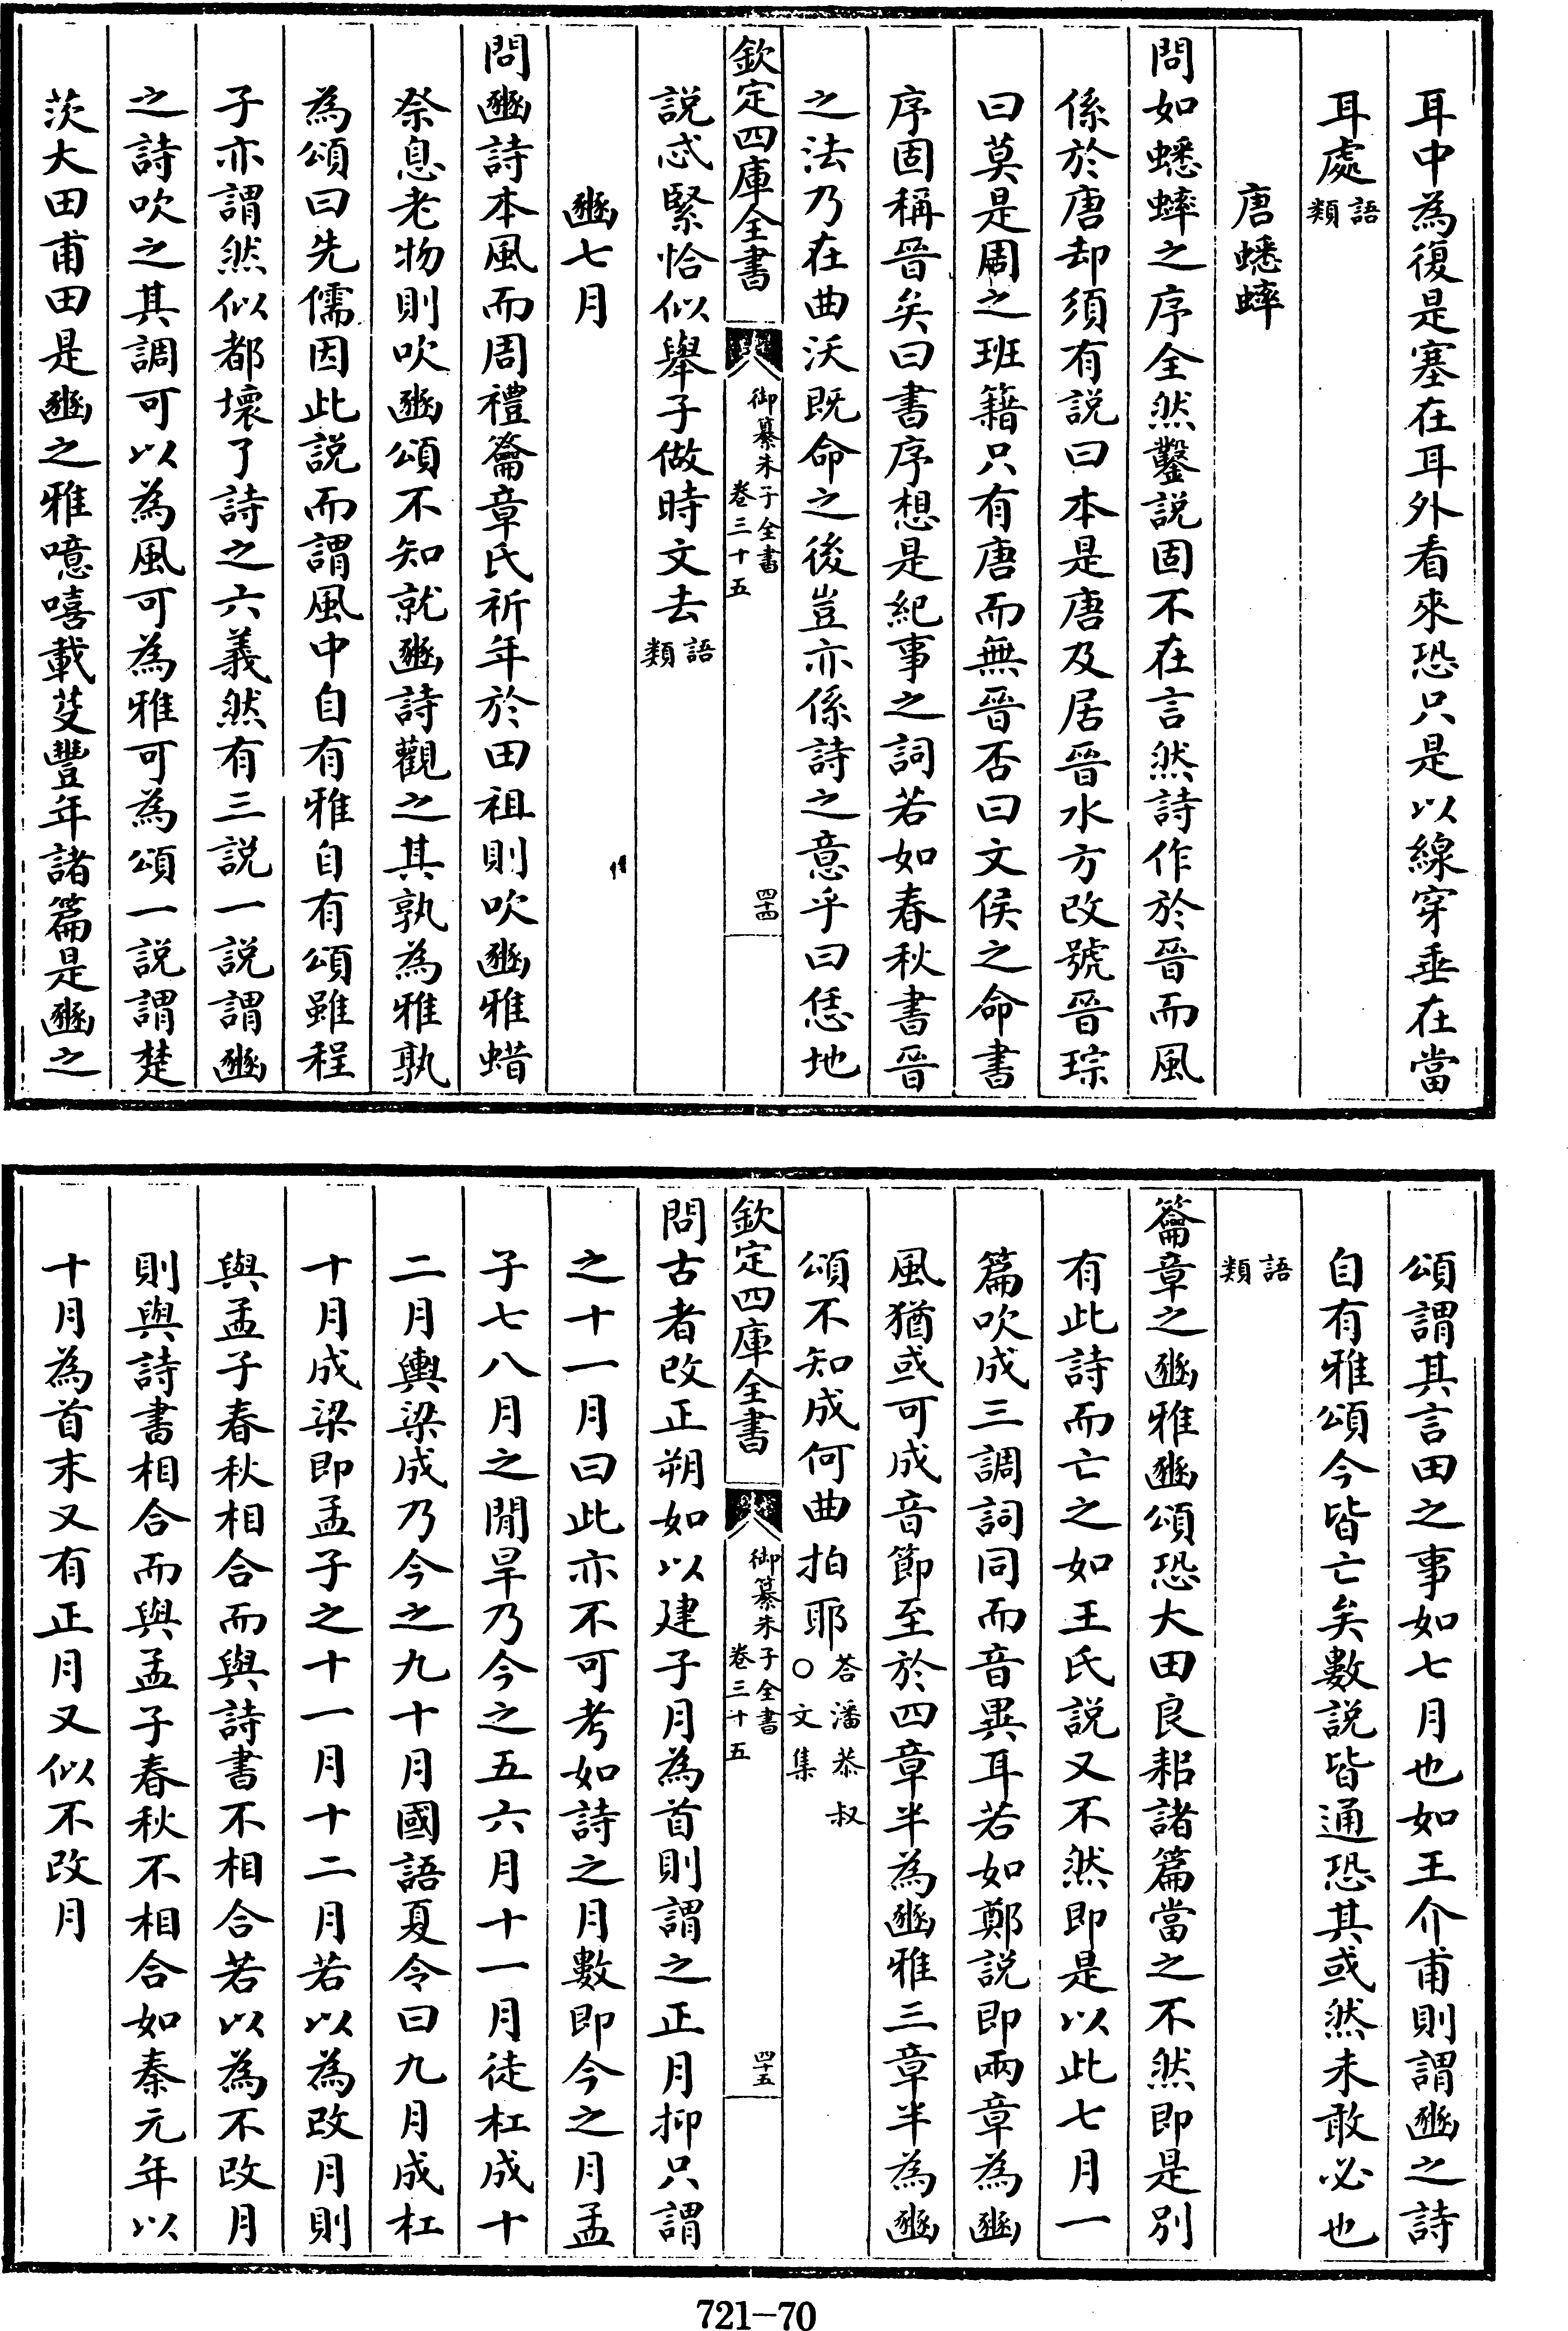 耳中為復是塞在耳外看來恐只是以線穿垂在當
耳處語類
唐蟋蟀
問如蟋蟀之序全然鑿説固不在言然詩作於晉而風
係於唐却須有説曰本是唐及居晉水方改號晉琮
曰莫是周之班籍只有唐而無晉否曰文侯之命書
序固稱晉矣曰書序想是紀事之詞若如春秋書晉
之法乃在曲沃既命之後豈亦係詩之意乎曰恁地
欽定四庫全書
御纂朱子全書
卷三十五
四十四
説忒緊恰似舉子做時文去語類
豳七月
問豳詩本風而周禮籥章氏祈年於田祖則吹豳雅蜡
祭息老物則吹豳頌不知就豳詩觀之其孰為雅孰
為頌曰先儒因此説而謂風中自有雅自有頌雖程
子亦謂然似都壞了詩之六義然有三説一説謂豳
之詩吹之其調可以為風可為雅可為頌一説謂楚
茨大田甫田是豳之雅噫嘻載芟豐年諸篇是豳之
頌謂其言田之事如七月也如王介甫則謂豳之詩
自有雅頌今皆亡矣數説皆通恐其或然未敢必也
語類
籥章之豳雅豳頌恐大田良耜諸篇當之不然即是別
有此詩而亡之如王氏説又不然即是以此七月一
篇吹成三調詞同而音異耳若如鄭説即兩章為豳
風猶或可成音節至於四章半為豳雅三章半為豳
頌不知成何曲拍耶答潘恭叔○文集
欽定四庫全書
御纂朱子全書
卷三十五
四十五
問古者改正朔如以建子月為首則謂之正月抑只謂
之十一月曰此亦不可考如詩之月數即今之月孟
子七八月之閒旱乃今之五六月十一月徒杠成十
二月輿梁成乃今之九十月國語夏令曰九月成杠
十月成梁即孟子之十一月十二月若以為改月則
與孟子春秋相合而與詩書不相合若以為不改月
則與詩書相合而與孟子春秋不相合如秦元年以
十月為首末又有正月又似不改月
721-70